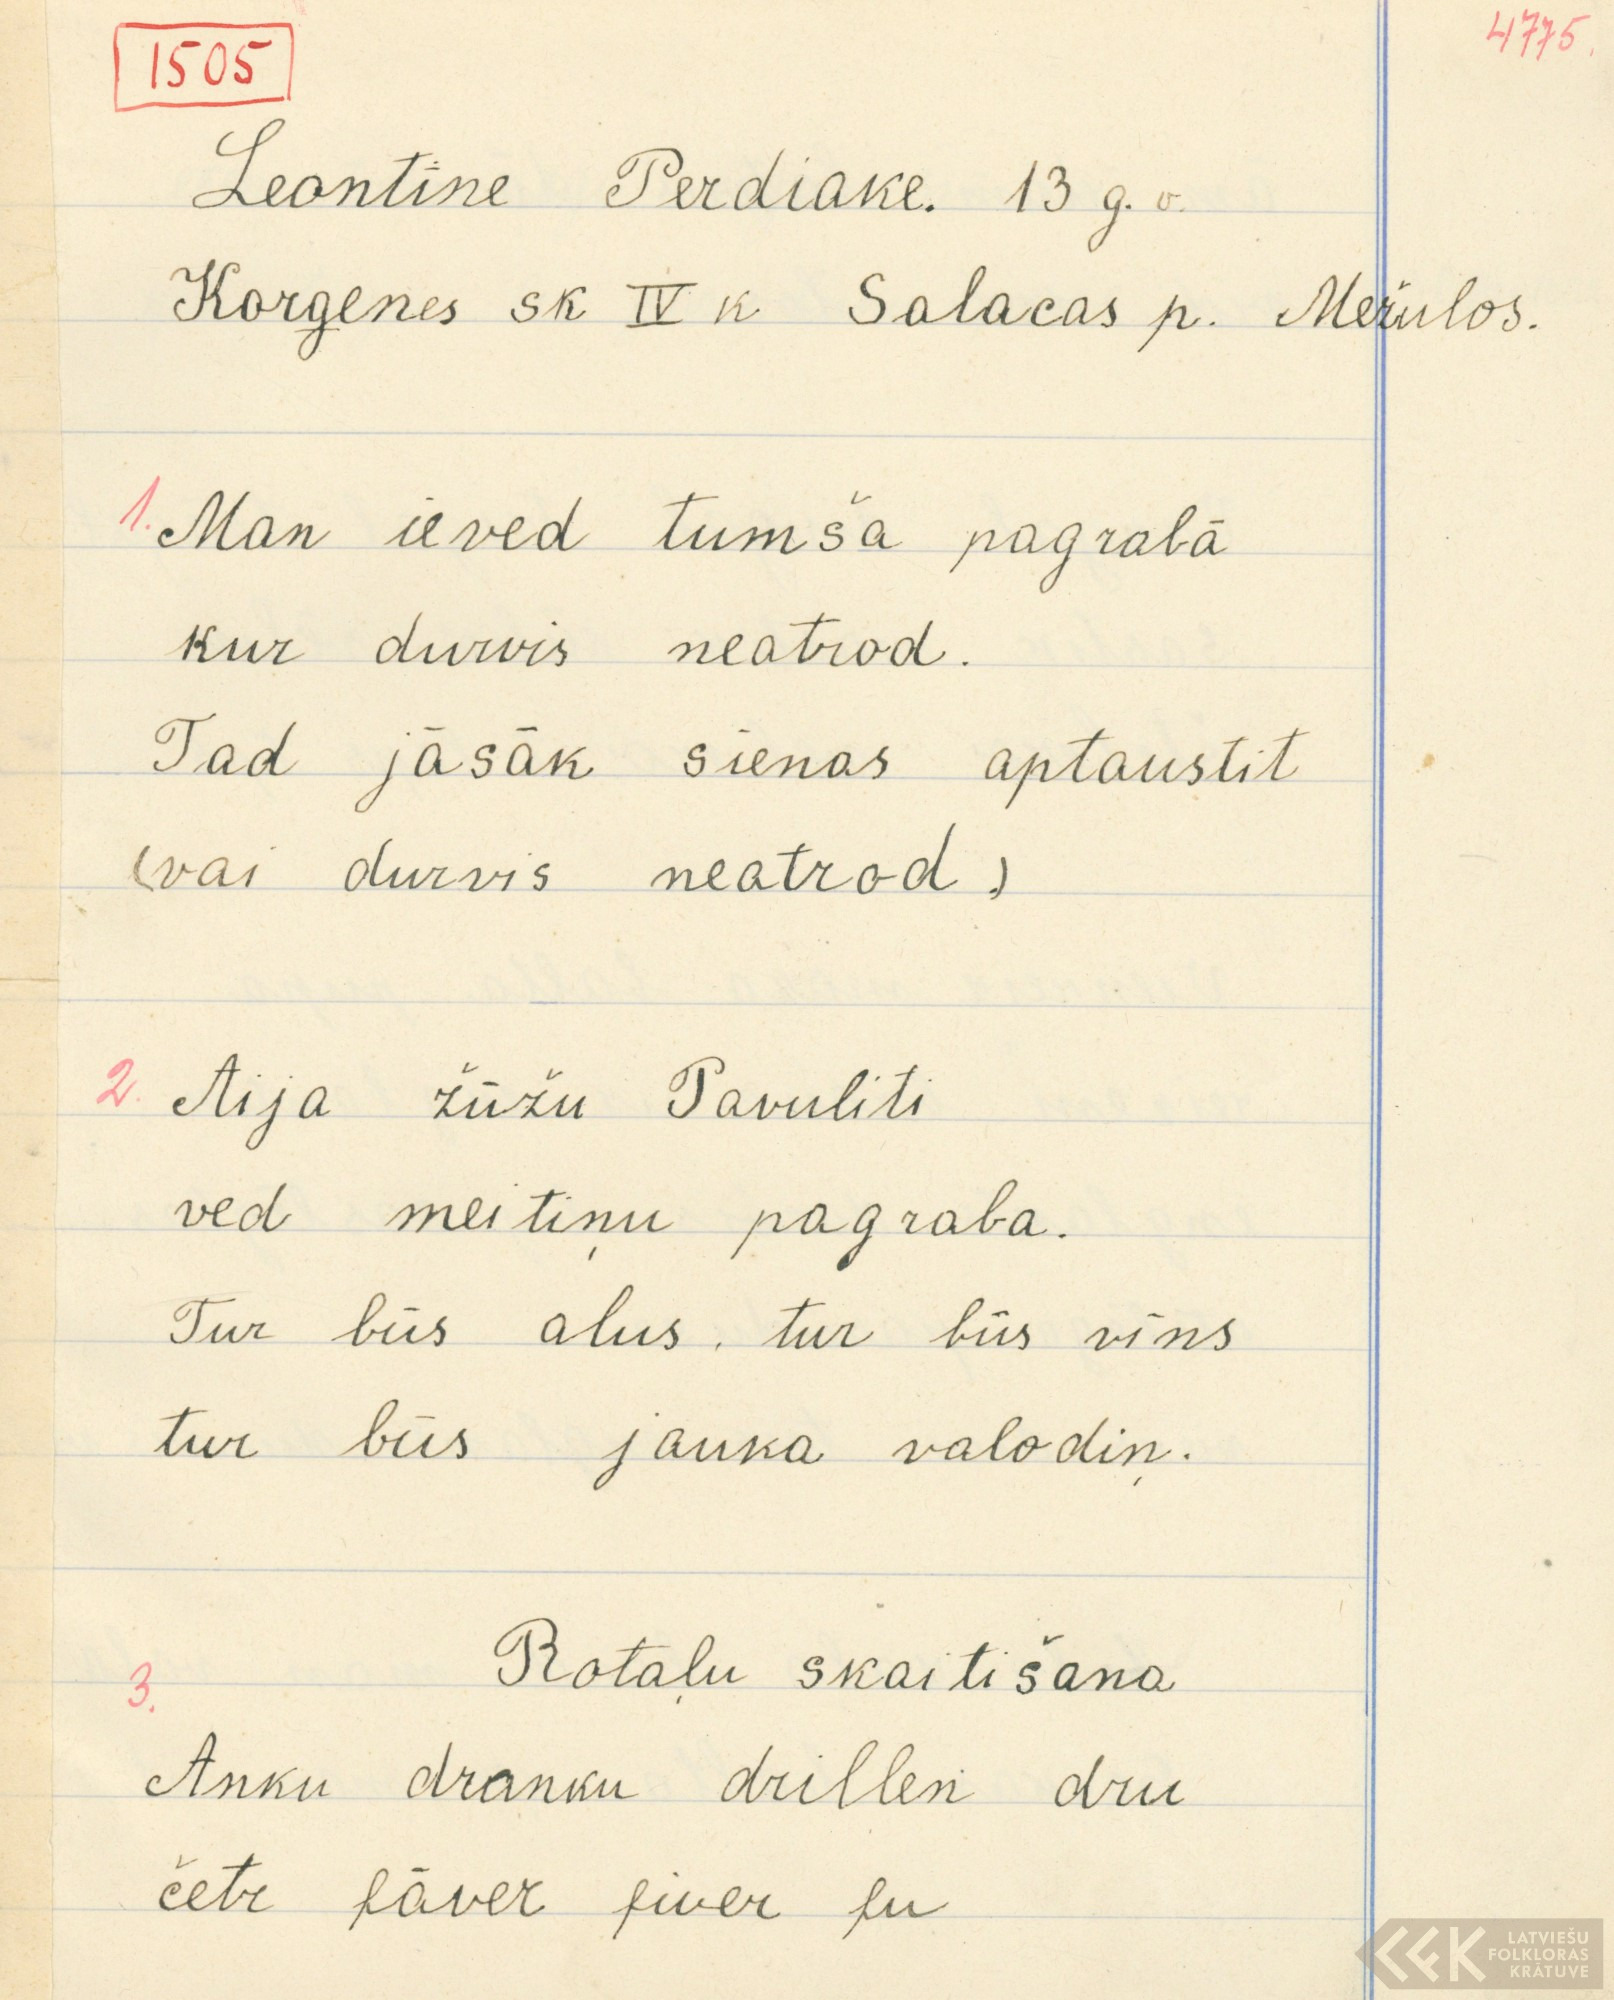 1505
4775.
Leontine Perdiake. 13 g. v.
Korgenes sk IV k Salacas p. Mežulos.
1. Man ieved tumša pagrabā
kur durvis neatrod.
Tad jāsāk sienas aptaustit
(vai durvis neatrod)
2. Aija žūžu Pavuliti
ved meitiņu pagraba.
Tur būs alus. tur būs vīns
tur būs jauka valodiņ.
3. Rotaļu skaitišana
Anku dranku drillen dru
četr fāver fiver fu
LATVIEŠU
FOLKLORAS
KRĀTUVE